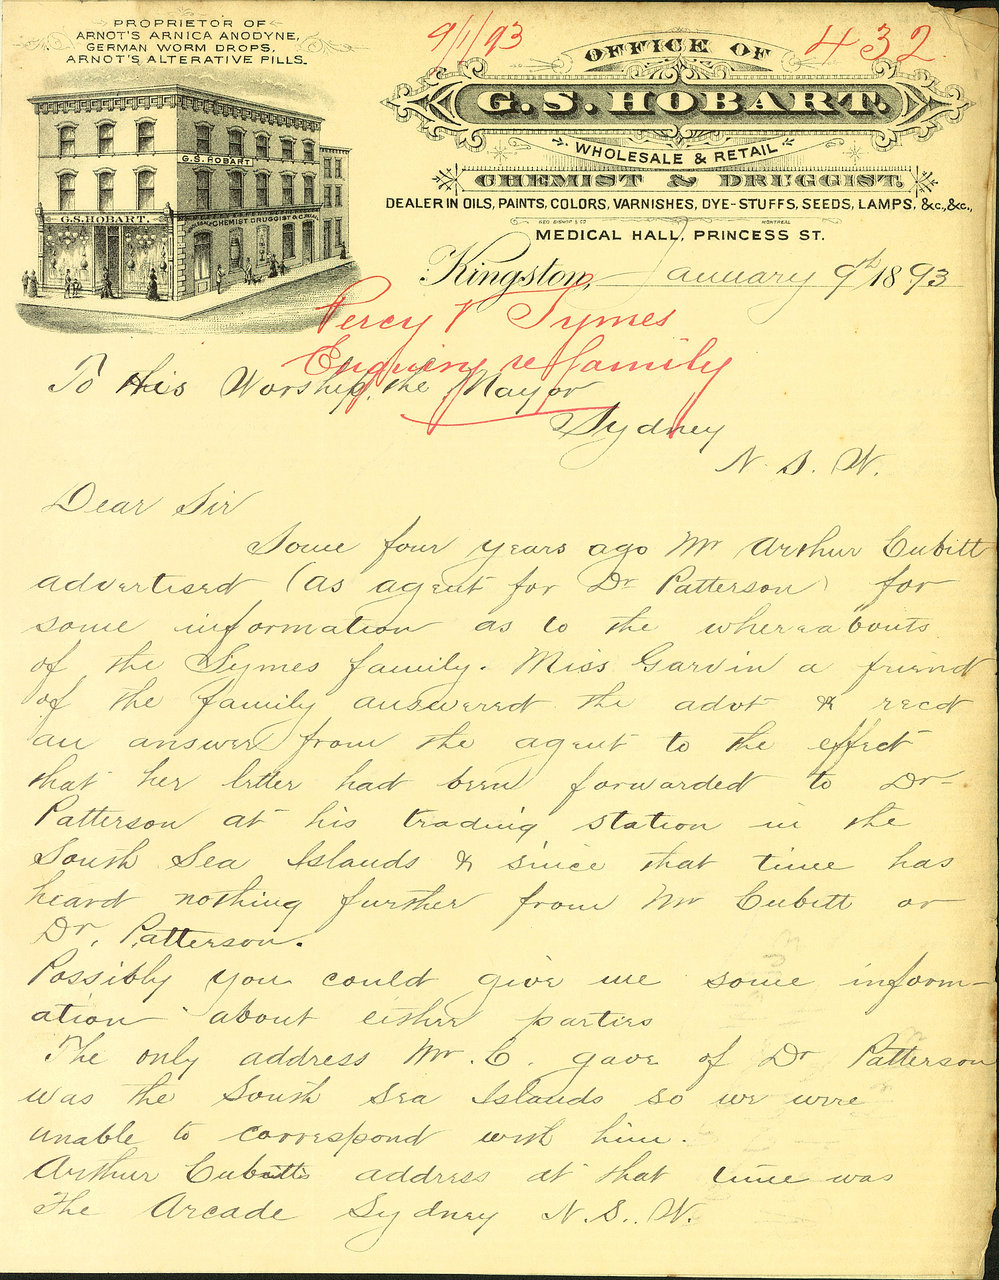 PROPRIETOR OF
ARNOT'S ARNICA ANODYNE,
GERMAN WORM DROPS,
ARNOT'S ALTERATIVE PILLS.
G.S. HOBART
G.S. HOBART.
CHEMIST DRUGGIST &C.
9/1/93
432
OFFICE OF
G. S. HOBART.
WHOLESALE & RETAIL
CHEMIST & DRUGGIST.
DEALER IN OILS, PAINTS, COLORS, VARNISHES, DYE-STUFFS, SEEDS, LAMPS, &c., &c.,
GEO BISHOP & CO MONTREAL
MEDICAL HALL, PRINCESS ST.
Kingston, January 9th 1893
Percy V Symes
Enquiry re family
To His Worship, the Mayor
Sydney
N. S. W.
Dear Sir
Some four years ago Mr Arthur Cubitt
advertised (as agent for Dr Patterson) for
some information as to the whereabouts
of the Symes family. Miss Garvin a friend
of the family answered the advt & recd
an answer from the agent to the effect
that her letter had been forwarded to Dr
Patterson at his trading station in the
South Sea Islands & since that time has
heard nothing further from Mr Cubitt or
Dr. Patterson.
Possibly you could give me some inform-
ation about either parties
The only address Mr. C. gave of Dr Patterson
was the South Sea Islands so we were
unable to correspond with him.
Arthur Cubitts address at that time was
The Arcade Sydney N. S. W.